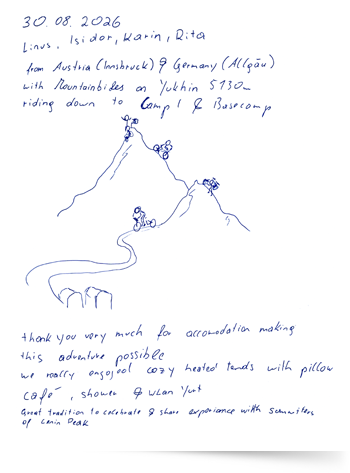 30.08.2026
Linus, Isidor, Karin, Rita
from Austria (Innsbruck) & Germany (Allgäu)
with Mountainbikes on Yukhin 5130m
riding down to Camp 1 & Basecamp
thank you very much for accomodation making
this adventure possible
we really engoyed cozy heated tends with pillow
café, shower & WLan Yurt
Great tradition to celebrate & share experience with summiters
of Lenin Peak